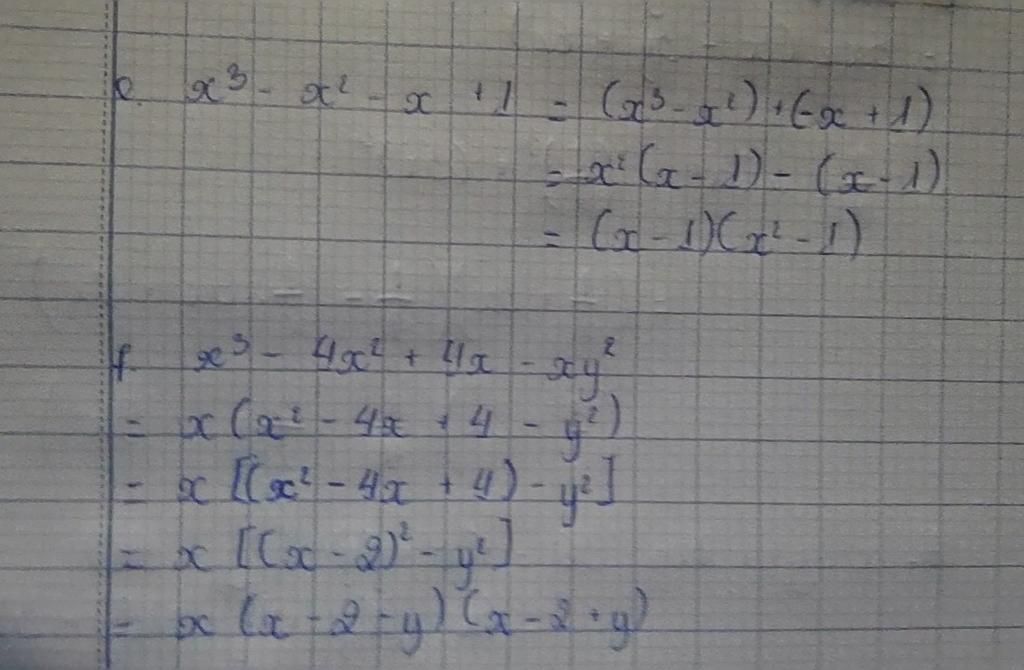 e. x³ - x² - x + 1 = (x³ - x²) + (-x + 1)
= x²(x - 1) - (x - 1)
= (x - 1)(x² - 1)
f. x³ - 4x² + 4x - xy²
= x(x² - 4x + 4 - y²)
= x[(x² - 4x + 4) - y²]
= x[(x - 2)² - y²]
= x(x - 2 - y)(x - 2 + y)